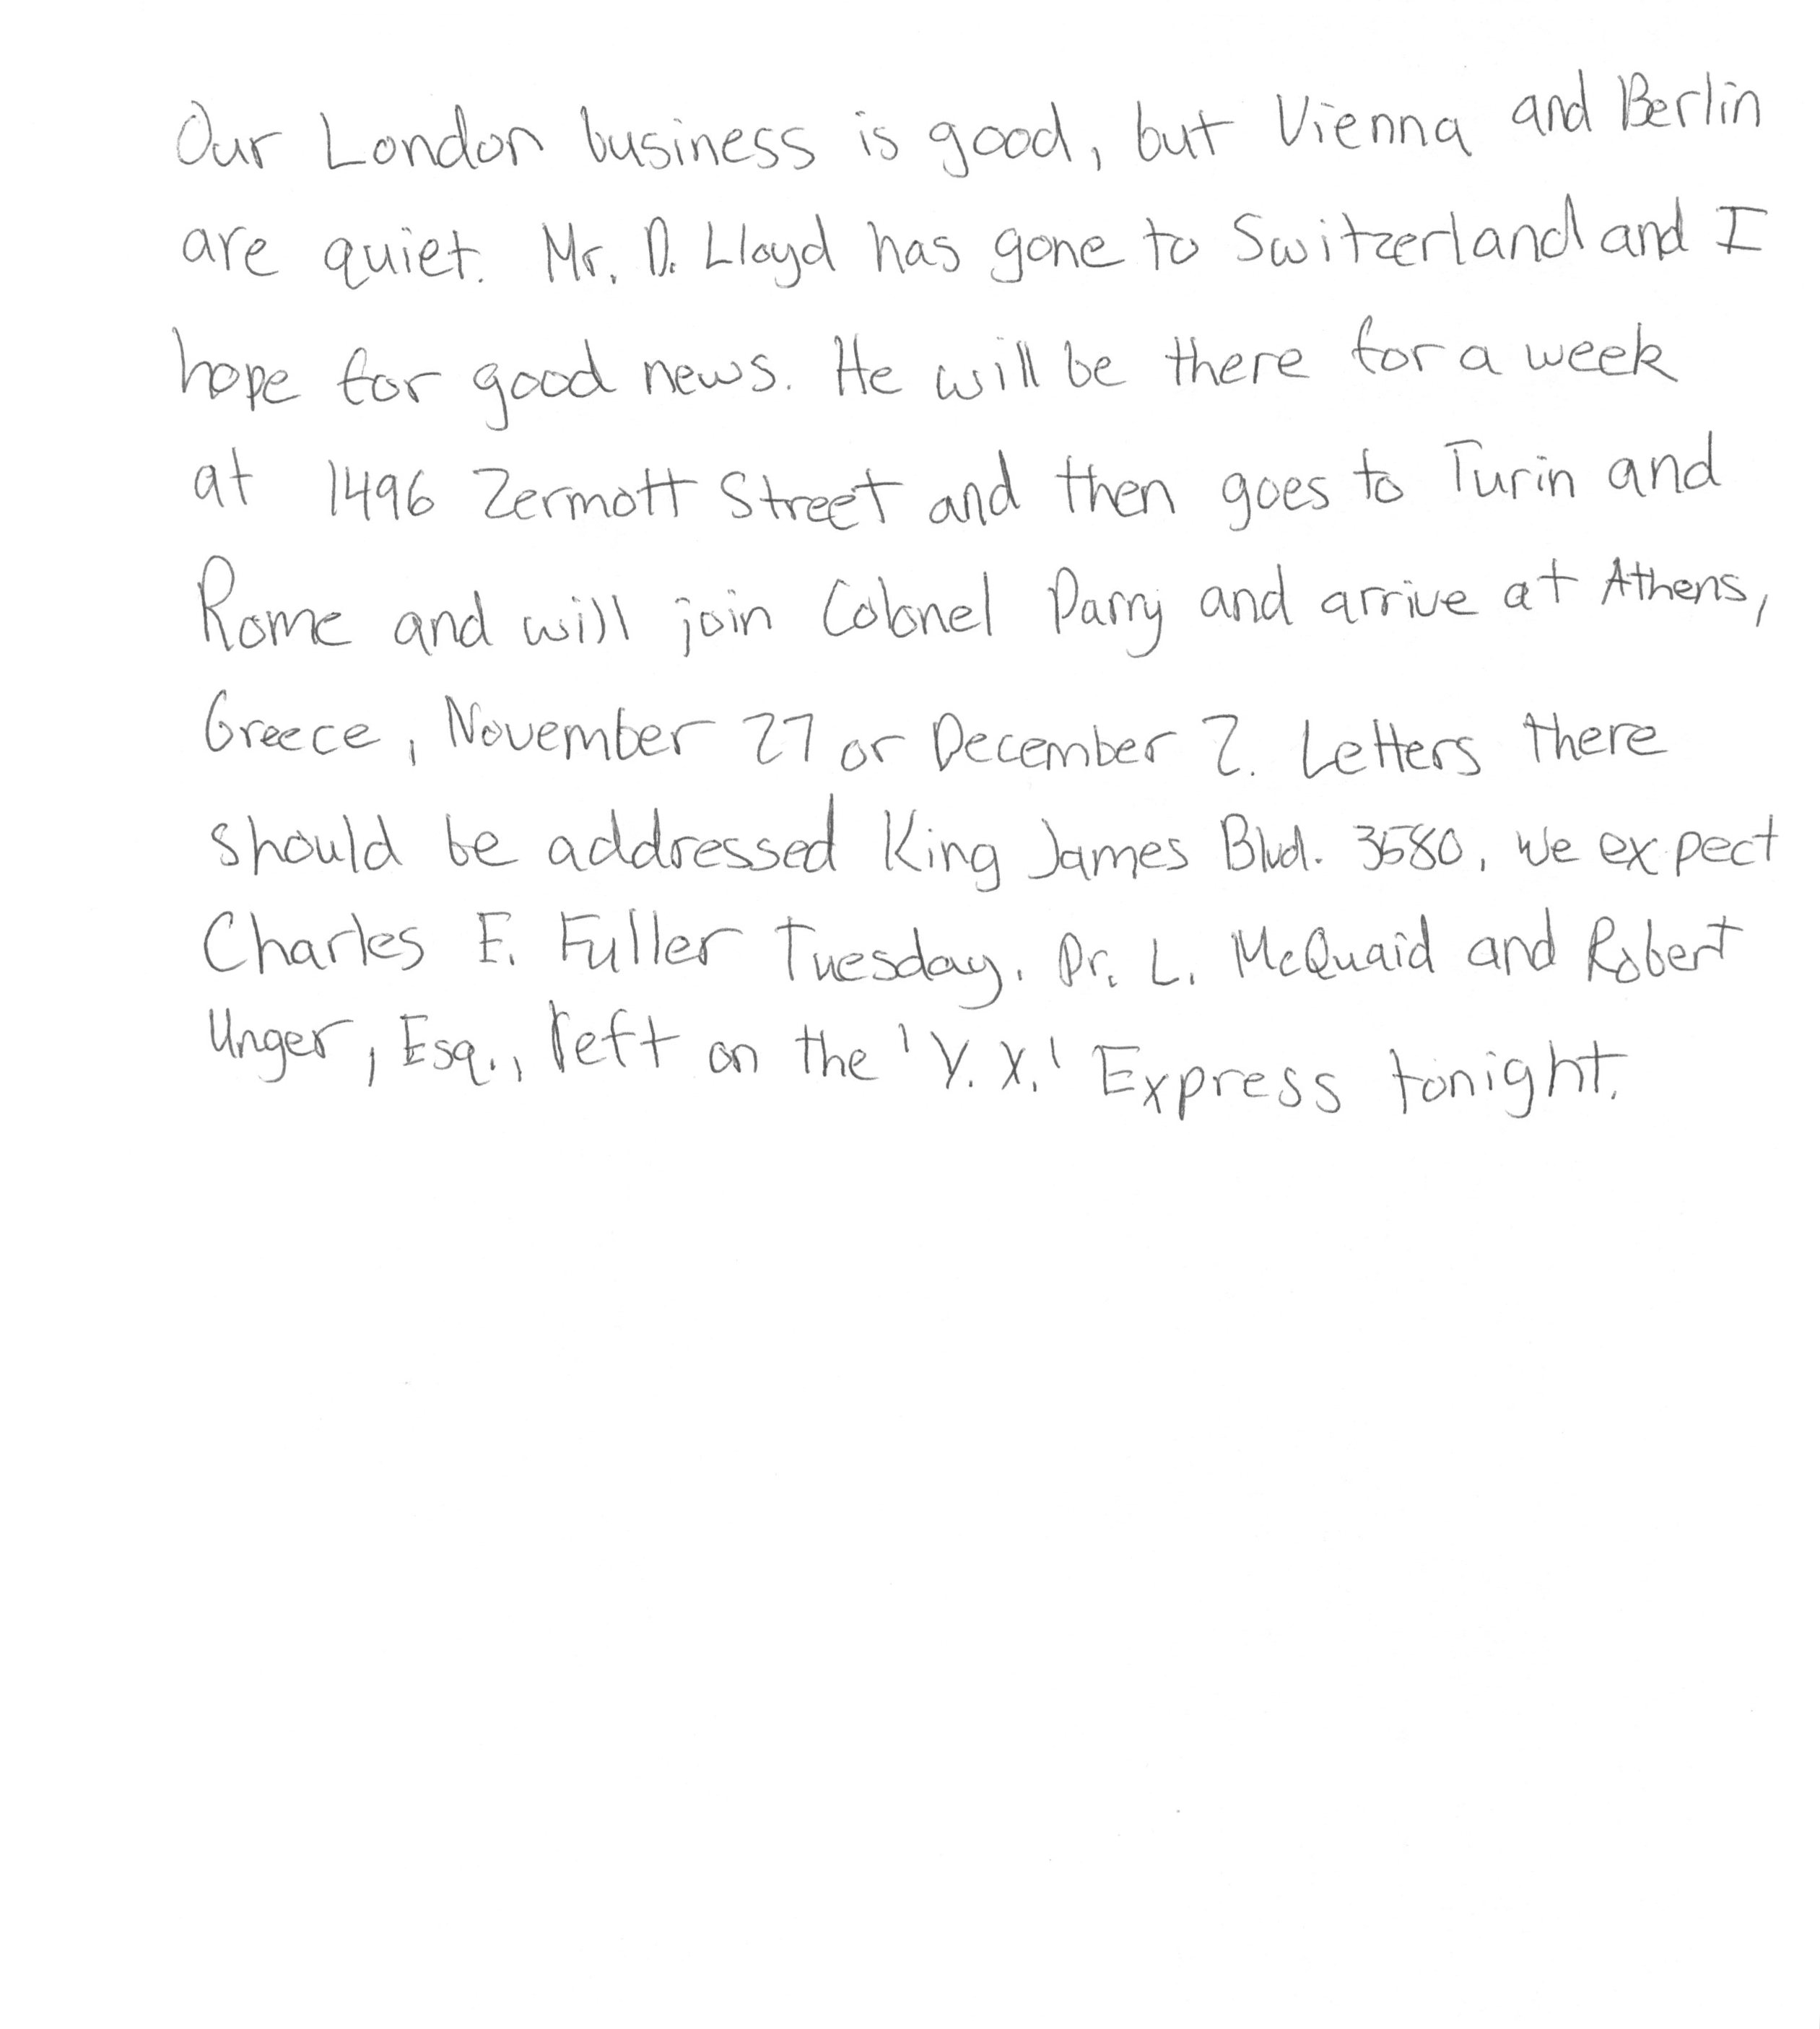 Our London business is good, but Vienna and Berlin
are quiet. Mr. D. Lloyd has gone to Switzerland and I
hope for good news. He will be there for a week
at 1496 Zermott Street and then goes to Turin and
Rome and will join Colonel Parry and arrive at Athens,
Greece, November 27 or December 2. Letters there
should be addressed King James Blvd. 3580. We expect
Charles E. Fuller Tuesday. Dr. L. McQuaid and Robert
Unger, Esq., left on the 'Y.X.' Express tonight.